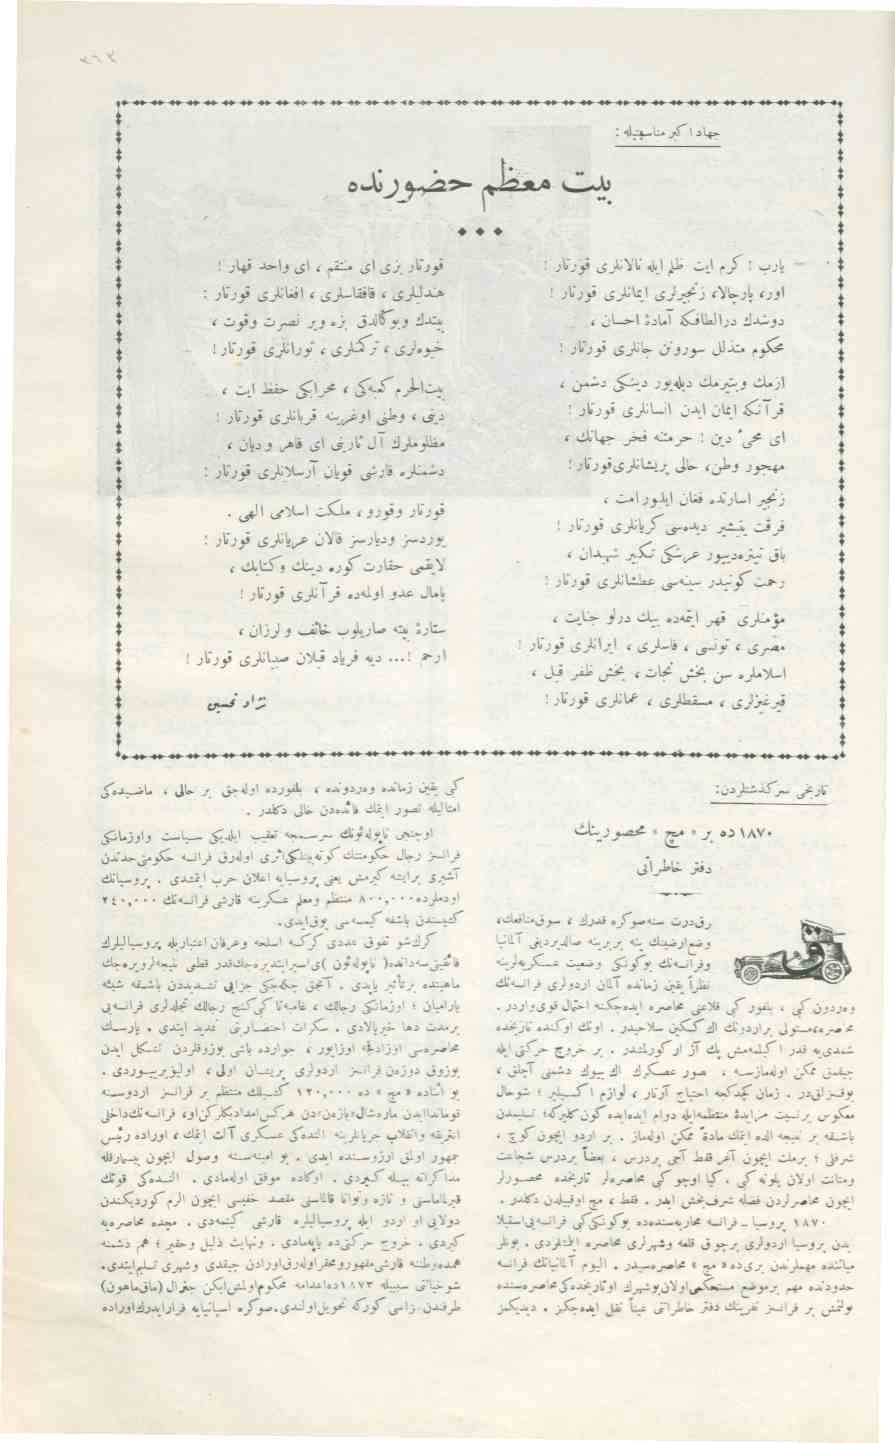 ٣٦٣
جهاد اكبر مناسبتيله :
بيت معظم حضورنده
يارب ! كرم ايت ظلم ايله نالانلرى قورتار !
اور، پارچالا، زنجيرلرى ايمانلرى قورتار !
دوشدك درالطافكه آمادهٔ احسان ،
محكوم مذلل سورونن جانلرى قورتار !
ازمك وبتيرمك ديله‌يور دينكى دشمن ،
قرآنكه ايمان ايدن انسانلرى قورتار !
اى محيىٔ دين ! حرمتنه فخر جهانك ،
مهجور وطن، حالى پريشانلرى قورتار !
زنجير اسارتده فغان ايليور امت ،
فرقت يتيشير ديده‌سى گريانلرى قورتار !
باق تيتره‌دييور عرشكى تكبير شهيدان ،
رحمت كونيدر سينه‌سى عطشانلرى قورتار !
مؤمنلرى قهر ايتمه‌ده بيك درلو جنايت ،
مصرى ، تونسى ، فاسلرى ، ايرانلرى قورتار !
اسلاملره سن بخش نجات ، بخش ظفر قيل ،
قيرغيزلرى ، مسقطلرى ، عمانلرى قورتار !
قورتار بزى اى منتقم ، اى واحد قهار !
هندليلرى ، قافقاسلرى ، افغانلرى قورتار !
بيتدك وبوكالدق بزه وير نصرت وقوت ،
خيوه‌لرى ، تركمنلرى ، تورانلرى قورتار !
بيت‌الحرم كعبه‌كى ، محرابكى حفظ ايت ،
دينى ، وطنى اوغرينه قربانلرى قورتار !
مظلوملرك آل ثارينى اى قاهر و ديان ،
دشمنلره قارشى قويان آرسلانلرى قورتار !
قورتار وقورو ، ملكت اسلامى الهى .
يوردسز وديارسز قالان عريانلرى قورتار !
لايقمى حقارت كوره دينك وكتابك ،
پامال عدو اولمه‌ده قرآنلرى قورتار !
ستارهٔ بيته صاريلوب خائف و لرزان ،
ارحم ! ... ديه فرياد قيلان صبيانلرى قورتار !
نژاد تحسين
تاريخى سرگذشتلردن:
١٨٧٠ ده بر « مچ » محصورينك
دفتر خاطراتى
برق‌درت سنه‌صوكره قدرك ، سوق‌منافعك،
وضع‌ارضينك ينه بربرينه صالديرديغى آلمانيا
وفرانسه‌نك بوكونكى وضعيت عسكريه‌لرينه
نظراً يقين زمانده آلمان اردولرى فرانسه‌نك
وه‌ردون كبى ، بلفور كبى قلاعنى محاصره ايده‌جكنه احتمال قوى‌واردر .
محاصره،مستولى براردونك اك كسكين سلاحيدر . اونك اوكنده تاريخده
شمدى‌يه قدر اكيلمه‌مش پك آز اركورلمشدر . بر خروج حركتى ايله
چيقمق ممكن اولمازسه ، محصور عسكرك اك بيوك دشمنى آچلق ،
يوقسزلق‌در . زمان كچدكجه احتياج آرتار ، لوازم اكسيلير ؛ شوحال
معكوس برنسبت متزايدهٔ منتظمه‌ايله دوام ايده‌ايده كون‌كليركه؛ تسليمدن
باشقه بر نتيجه الده ايتمك مادةً ممكن اوله‌ماز . بر اردو ايچون كوچ ،
شرفلى ؛ برملت ايچون آغر فقط آجى بردرس ، بعضاً بردرس شجاعت
ومتانت اولان پلونه كبى . كبا اوچو كبى محاصره‌لر تاريخده محصورلر
ايچون محاصرلردن فضله شرف‌بخش ايدر . فقط ، مچ اوقبيلدن دكلدر .
١٨٧٠ پروسيا ـ فرانسه محاربه‌سنده‌ده بوكونكى‌كبى فرانسه‌يى‌استيلا
يدن پروسيا اردولرى برچوق قلعه وشهرلرى محاصره ايلمشلردى . بونلر
مياننده مهملرندن برى‌ده « مچ » محاصره‌سيدر . اليوم آلمانيانك فرانسه
حدودنده مهم برموضع مستحكمى‌اولان‌بوشهرك اوتاريخده‌كى‌محاصره‌سنده
بولنمش بر فرانسز نفرينك دفتر خاطراتى عيناً نقل ايده‌جكز . ديديكمز
كبى يقين زمانده وه‌ردونده ، بلفورده اوله‌جق بر حالى ، ماضيده‌كى
امثاليله تصور ايتمك فائده‌دن خالى دكلدر .
اوچنجى ناپوله‌ئونك سرسمجه تعقيب ايلديكى سياست واوزمانكى
فرانسز رجال حكومتنك كوته‌بينلكى‌اثرى اوله‌رق فرانسه حكومتى‌حددن
آشيرى برايشه كيرمش يعنى پروسيايه اعلان حرب ايتمشدى . پروسيانك
اودملرده ٨٠٠,٠٠٠ منتظم ومعلم عسكرينه قارشى فرانسه‌نك ٢٤٠,٠٠٠
كشيسندن باشقه كيمسه‌سى يوق‌ايدى.
كرك‌شو تفوق عددى كركسه اسلحه وعرفان اعتباريله پروسياليلرك
فائقيتى‌سه‌دانده( ناپوله‌ئون )ى‌اسيرايتديره‌جك‌قدر قطعى نتيجه‌لرويره‌جك
ماهيتده برتأثير ياپدى . آنجق چكه‌جكى جزايى تشديددن باشقه شيئه
ياراميان ؛ اوزمانكى رجالك ، غامبه‌تا كبى‌كنج رجالك تجلدلرى فرانسه‌يى
برمدت دها خيرپالادى . سكرات احتضارينى تمديد ايتدى . پارسك
محاصره‌سى اوزادقجه اوزايور ، جوارده باشى بوزوقلردن تشكل ايدن
بوزوق دوزن فرانسز اردولرى پريشان اولى ، اوليويريوردى .
بو اثناده « مچ » ده ١٢٠,٠٠٠ كشيلك منتظم بر فرانسز اردوسنه
قوماندا‌ايدن ماره‌شال«بازه‌ن»دن هركس‌امدادبكلركن‌او، فرانسه‌نك‌داخلى
انتريقه وانقلاب جريانلرينه النده‌كى عسكرى آلت ايتمك ، اوراده رئيس
جمهور اولمق آرزوسنده ايدى . بو امنيه‌سنه وصول ايچون بيسمارقله
مذاكراته بيله كيردى . اوكاده موفق اوله‌مادى . النده‌كى قوتك
قيرلماماسنى و تازه وتوانا قالماسنى مقصد خفيسى ايچون الزم كورديكندن
دولايى او اردو ايله پروسياليلره قارشى كيتمه‌دى . مچده محاصره‌يه
كيردى . خروج حركتى‌ده ياپه‌مادى . ونهايت ذليل وحقير ؛ هم دشمنه
هم‌ده‌وطننه قارشى‌مقهورومحقراوله‌رق‌اورادن چيقدى وشهرى تسليم‌ايتدى.
شوخيانتى سببيله ١٨٧٣ده‌اعدامه محكوم‌اولمش‌ايكن جنرال (ماق‌ماهون)
طرفندن جزاسى كوركه تحويل‌اولندى.صوكره اسپانيايه فرارايدرك‌اوراده